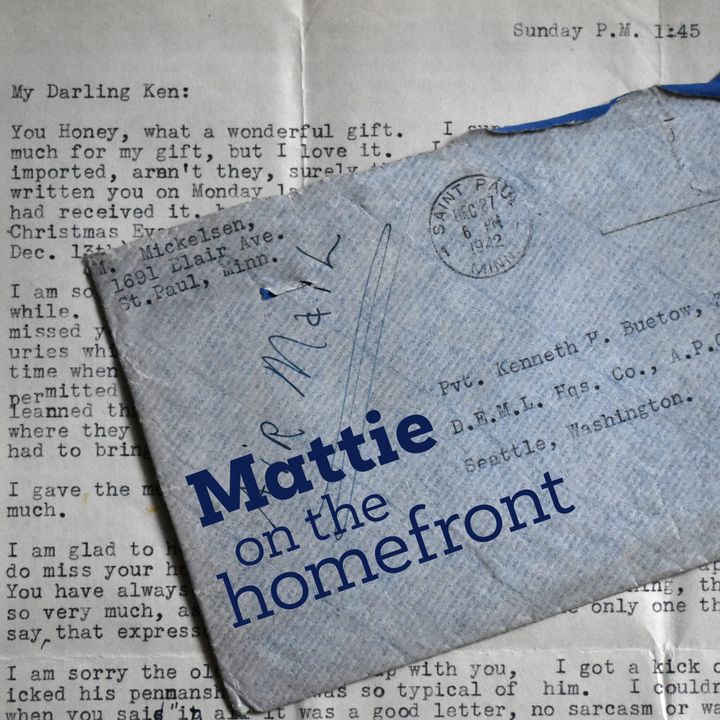 Sunday P.M. 1:45
My Darling Ken:
You Honey, what a wonderful gift. I
much for my gift, but I love it.
imported, aren't they, surely
written you on Monday
had received it,
Christmas Eve
Dec. 13th
I am so
while.
missed
uries
time when
permitted
leanned
where they
had to bring
I gave the
much.
I am glad to
do miss your
You have always
so very much,
say, that express
I am sorry the up with you, I got a kick
icked his penmansh was so typical of him. I
when you said "in all it was a good letter, no sarcasm or
only one
M. Mickelsen,
1691 Blair Ave.
St.Paul, Minn.
AIR MAIL
SAINT PAUL
DEC 27
6 PM
1942
MINN.
Pvt. Kenneth F. Buetow,
D.E.M.L. Hqs. Co., A.P.O
Seattle, Washington.
Mattie
on the
homefront